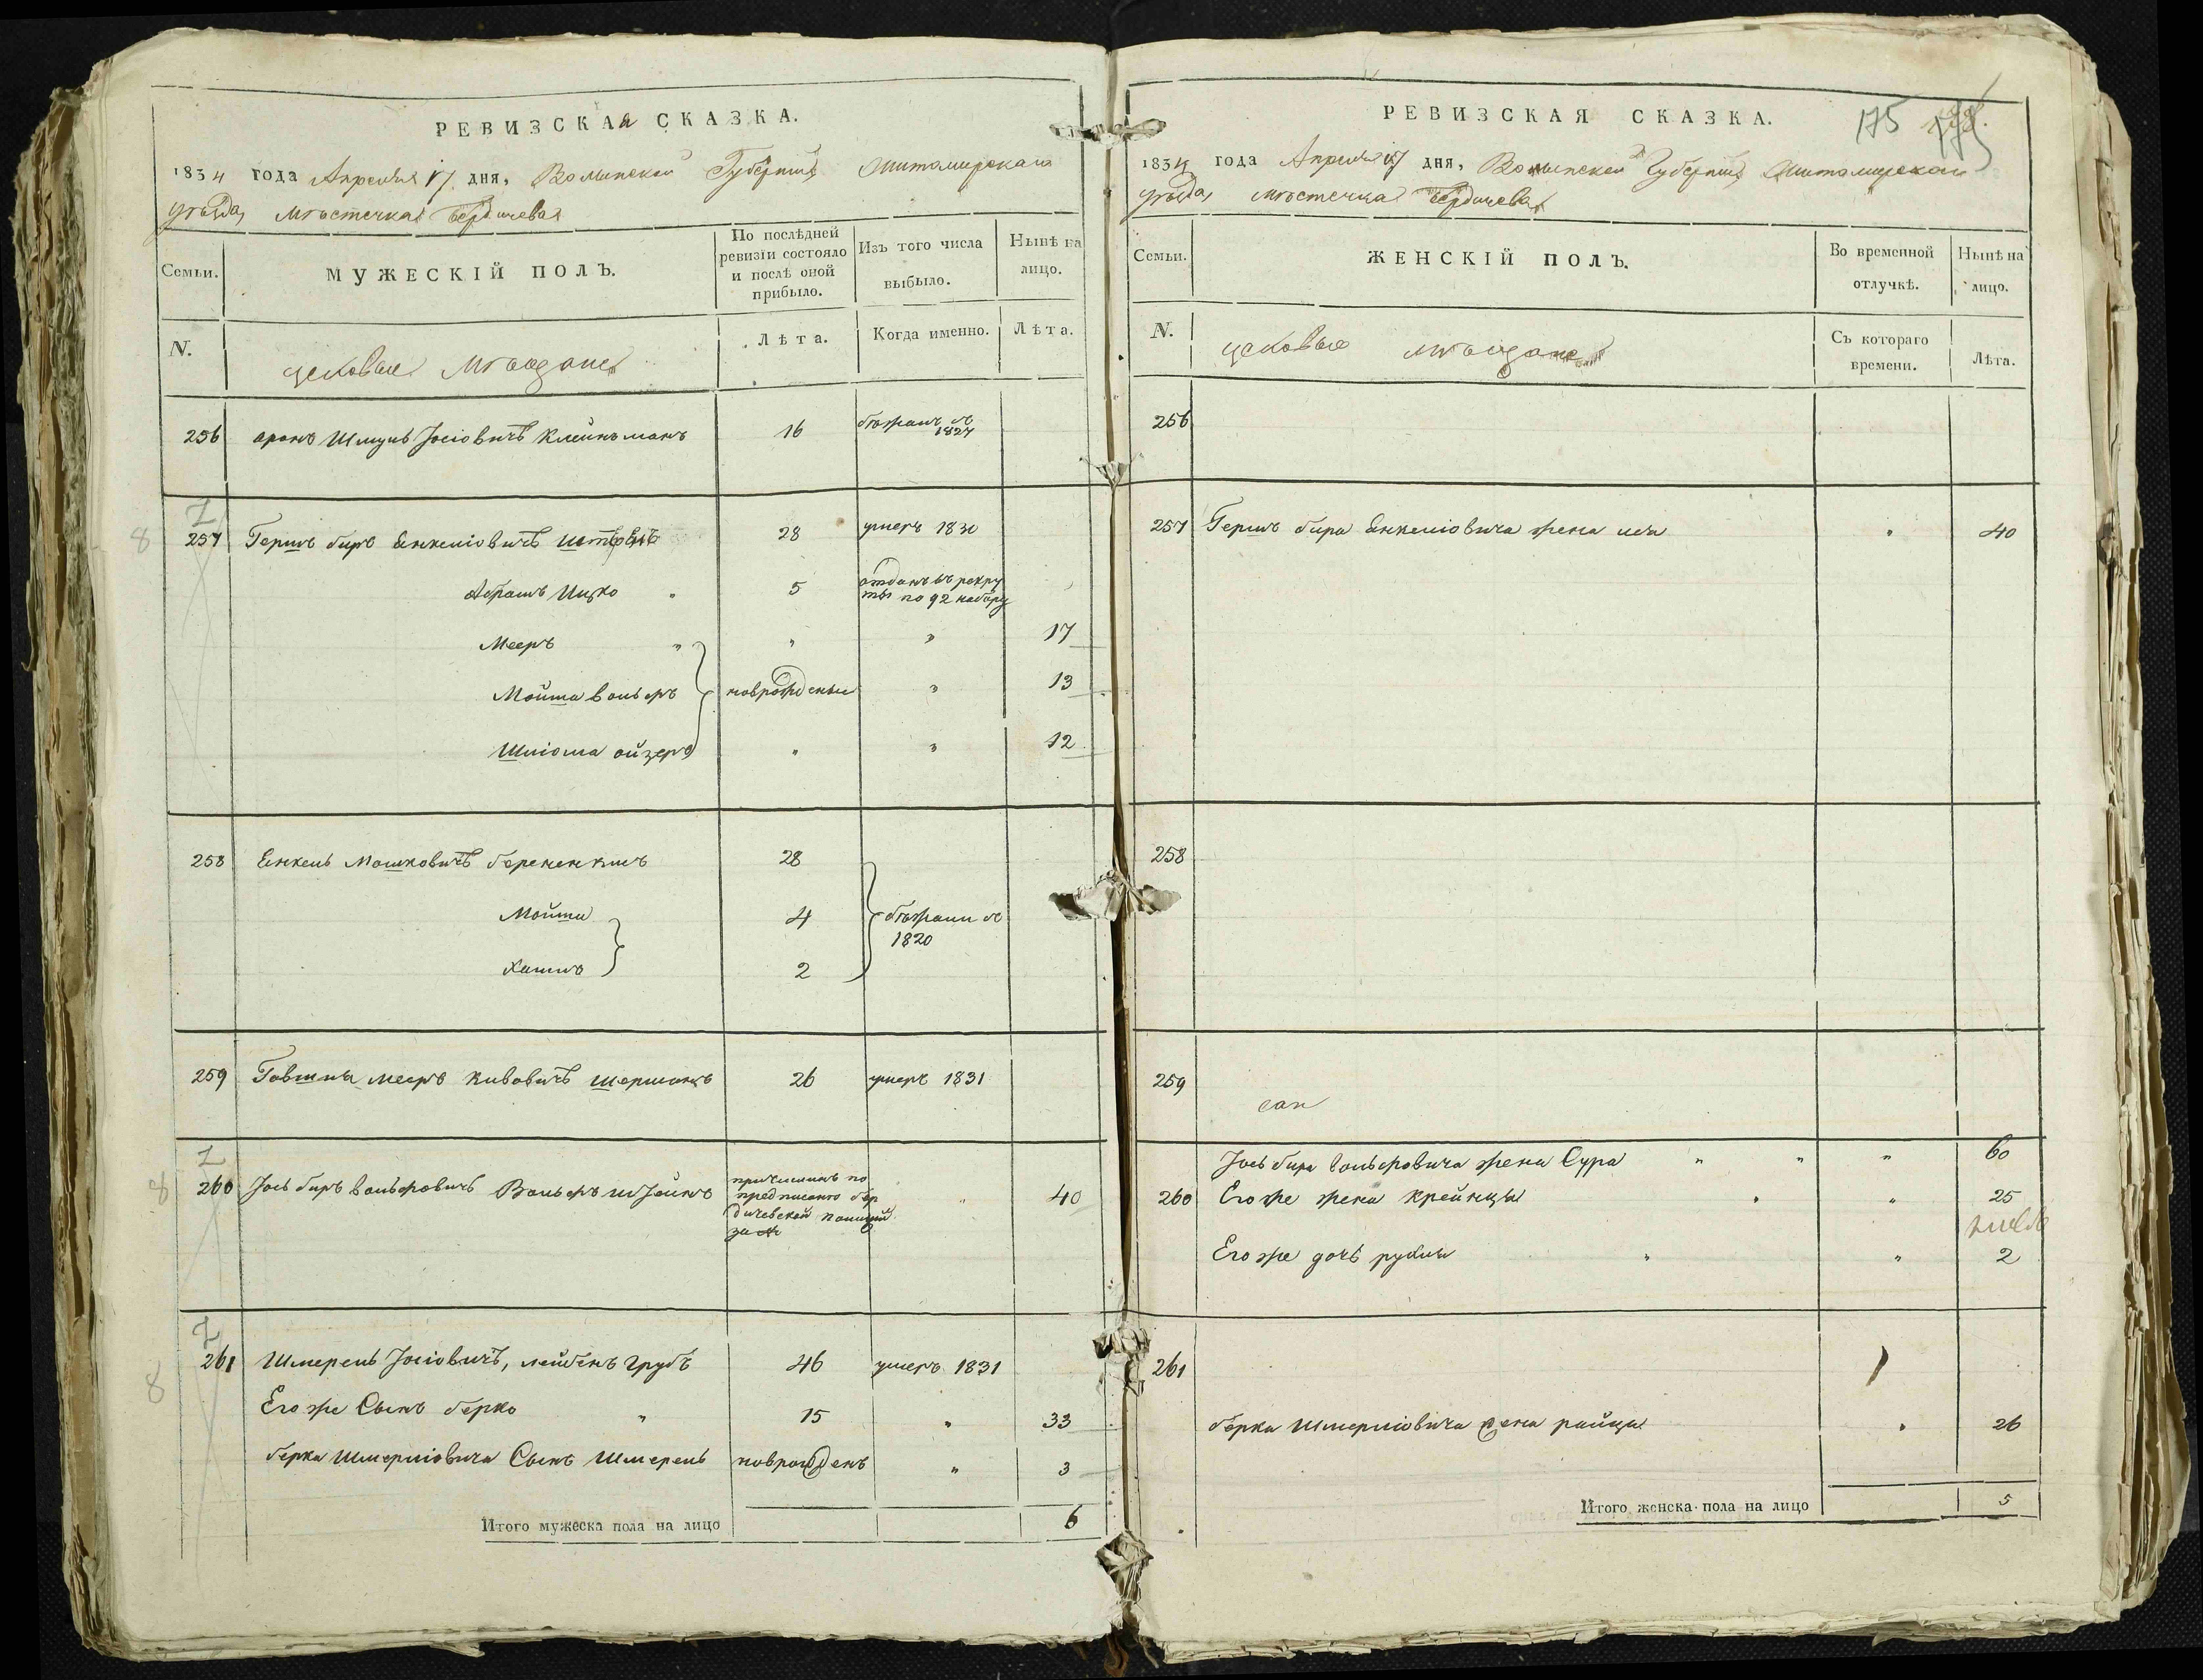 РЕВИЗСКАЯ СКАЗКА.
1834 года Апреля 17 дня, Волынской Губерніи Житомирскаго
уѣзда, мѣстечка Бердичева
Семьи.
МУЖЕСКІЙ ПОЛЪ.
По послѣдней ревизіи состояло и послѣ оной прибыло.
Изъ того числа выбыло.
Нынѣ на лицо.
N.
цеховые мѣщане
Лѣта.
Когда именно.
Лѣта.
256 аронъ Шмуль Іосіовичъ Клейнъманъ 16 бѣжалъ въ 1827
257 Гершъ беръ Енкеліовичъ 28 умеръ 1830
Абрамъ Ицко " 5 отданъ въ рекру
ты по 92 набору
Мееръ " " " 17
Мойша вольфъ новрожденые " 13
Шліома ойзеръ " " 12
258 Енкель Мошковичъ 28
Мойша 4 бѣжали въ
1820
Хаимъ 2
259 Гавшия мееръ Кивовичъ шерманъ 26 умеръ 1831
260 Іось беръ вольфовичъ причисленъ по
предписанію бер
дичевской полиціи
" 40
261 Шмерель Іосіовичъ, лейбенъ грубъ 46 умеръ 1831
Его же Сынъ берко " 15 " 33
берка Шмерліовича Сынъ Шмерель новрожденъ " 3
Итого мужеска пола на лицо 6
8
8
8
РЕВИЗСКАЯ СКАЗКА.
175
1834 года Апреля 17 дня, Волынской Губерніи Житомирскаго
уѣзда, мѣстечка Бердичева
Семьи.
ЖЕНСКІЙ ПОЛЪ.
Во временной отлучкѣ.
Нынѣ на лицо.
N.
цеховые мѣщане
Съ котораго времени.
Лѣта.
256
257 Гершъ бера Енкеліовича жена " 40
258
259
260 Іось бера вольфовича жена Сура " " " 60
Его же жена крейнцы " " 25
Его же дочь рухля " " 2
261
берка Шмерліовича жена райца " 26
Итого женска пола на лицо 5